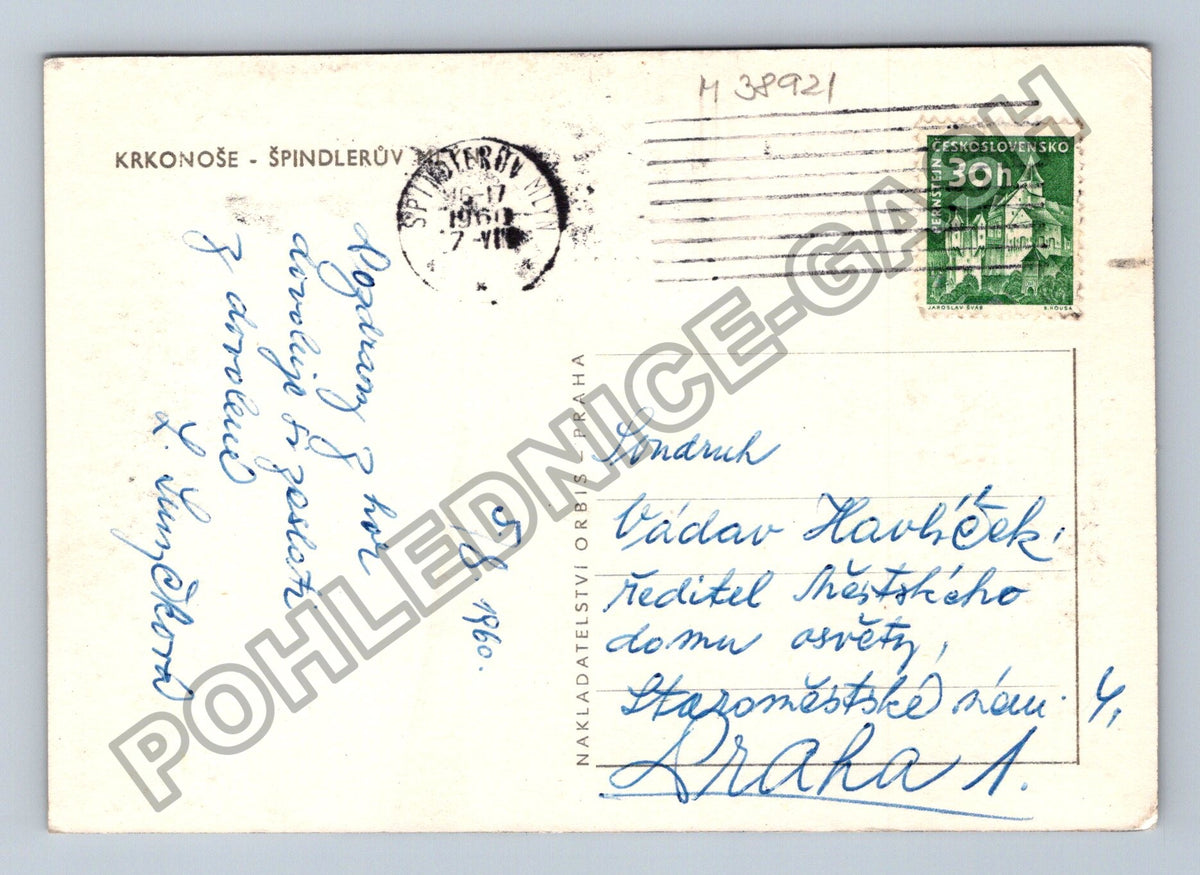 M 38921
KRKONOŠE - ŠPINDLERŮV
ŠPINDLERŮV MLÝN
16-17
1960
7.VIII
ČESKOSLOVENSKO
30h
PERNŠTEJN
JAROSLAV ŠVÁB
Pozdravy z hor
dovoluje si zaslati
z dovolené
7/8 1960.
NAKLADATELSTVÍ ORBIS - PRAHA
Soudruh
Václav Havlíček,
ředitel Městského
domu osvěty,
Staroměstské nám. 4,
Praha 1.
POHLEDNICE-GACH